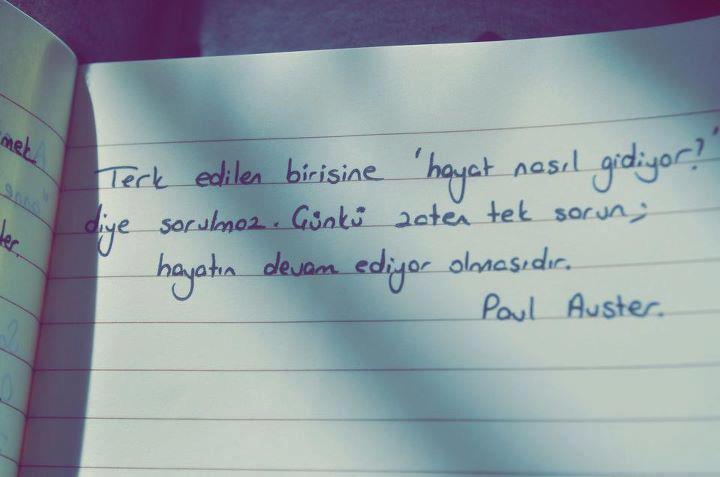 Terk edilen birisine 'hayat nasıl gidiyor?'
diye sorulmaz. Günkü zaten tek sorun;
hayatın devam ediyor olmasıdır.
Paul Auster.
mek
ler.